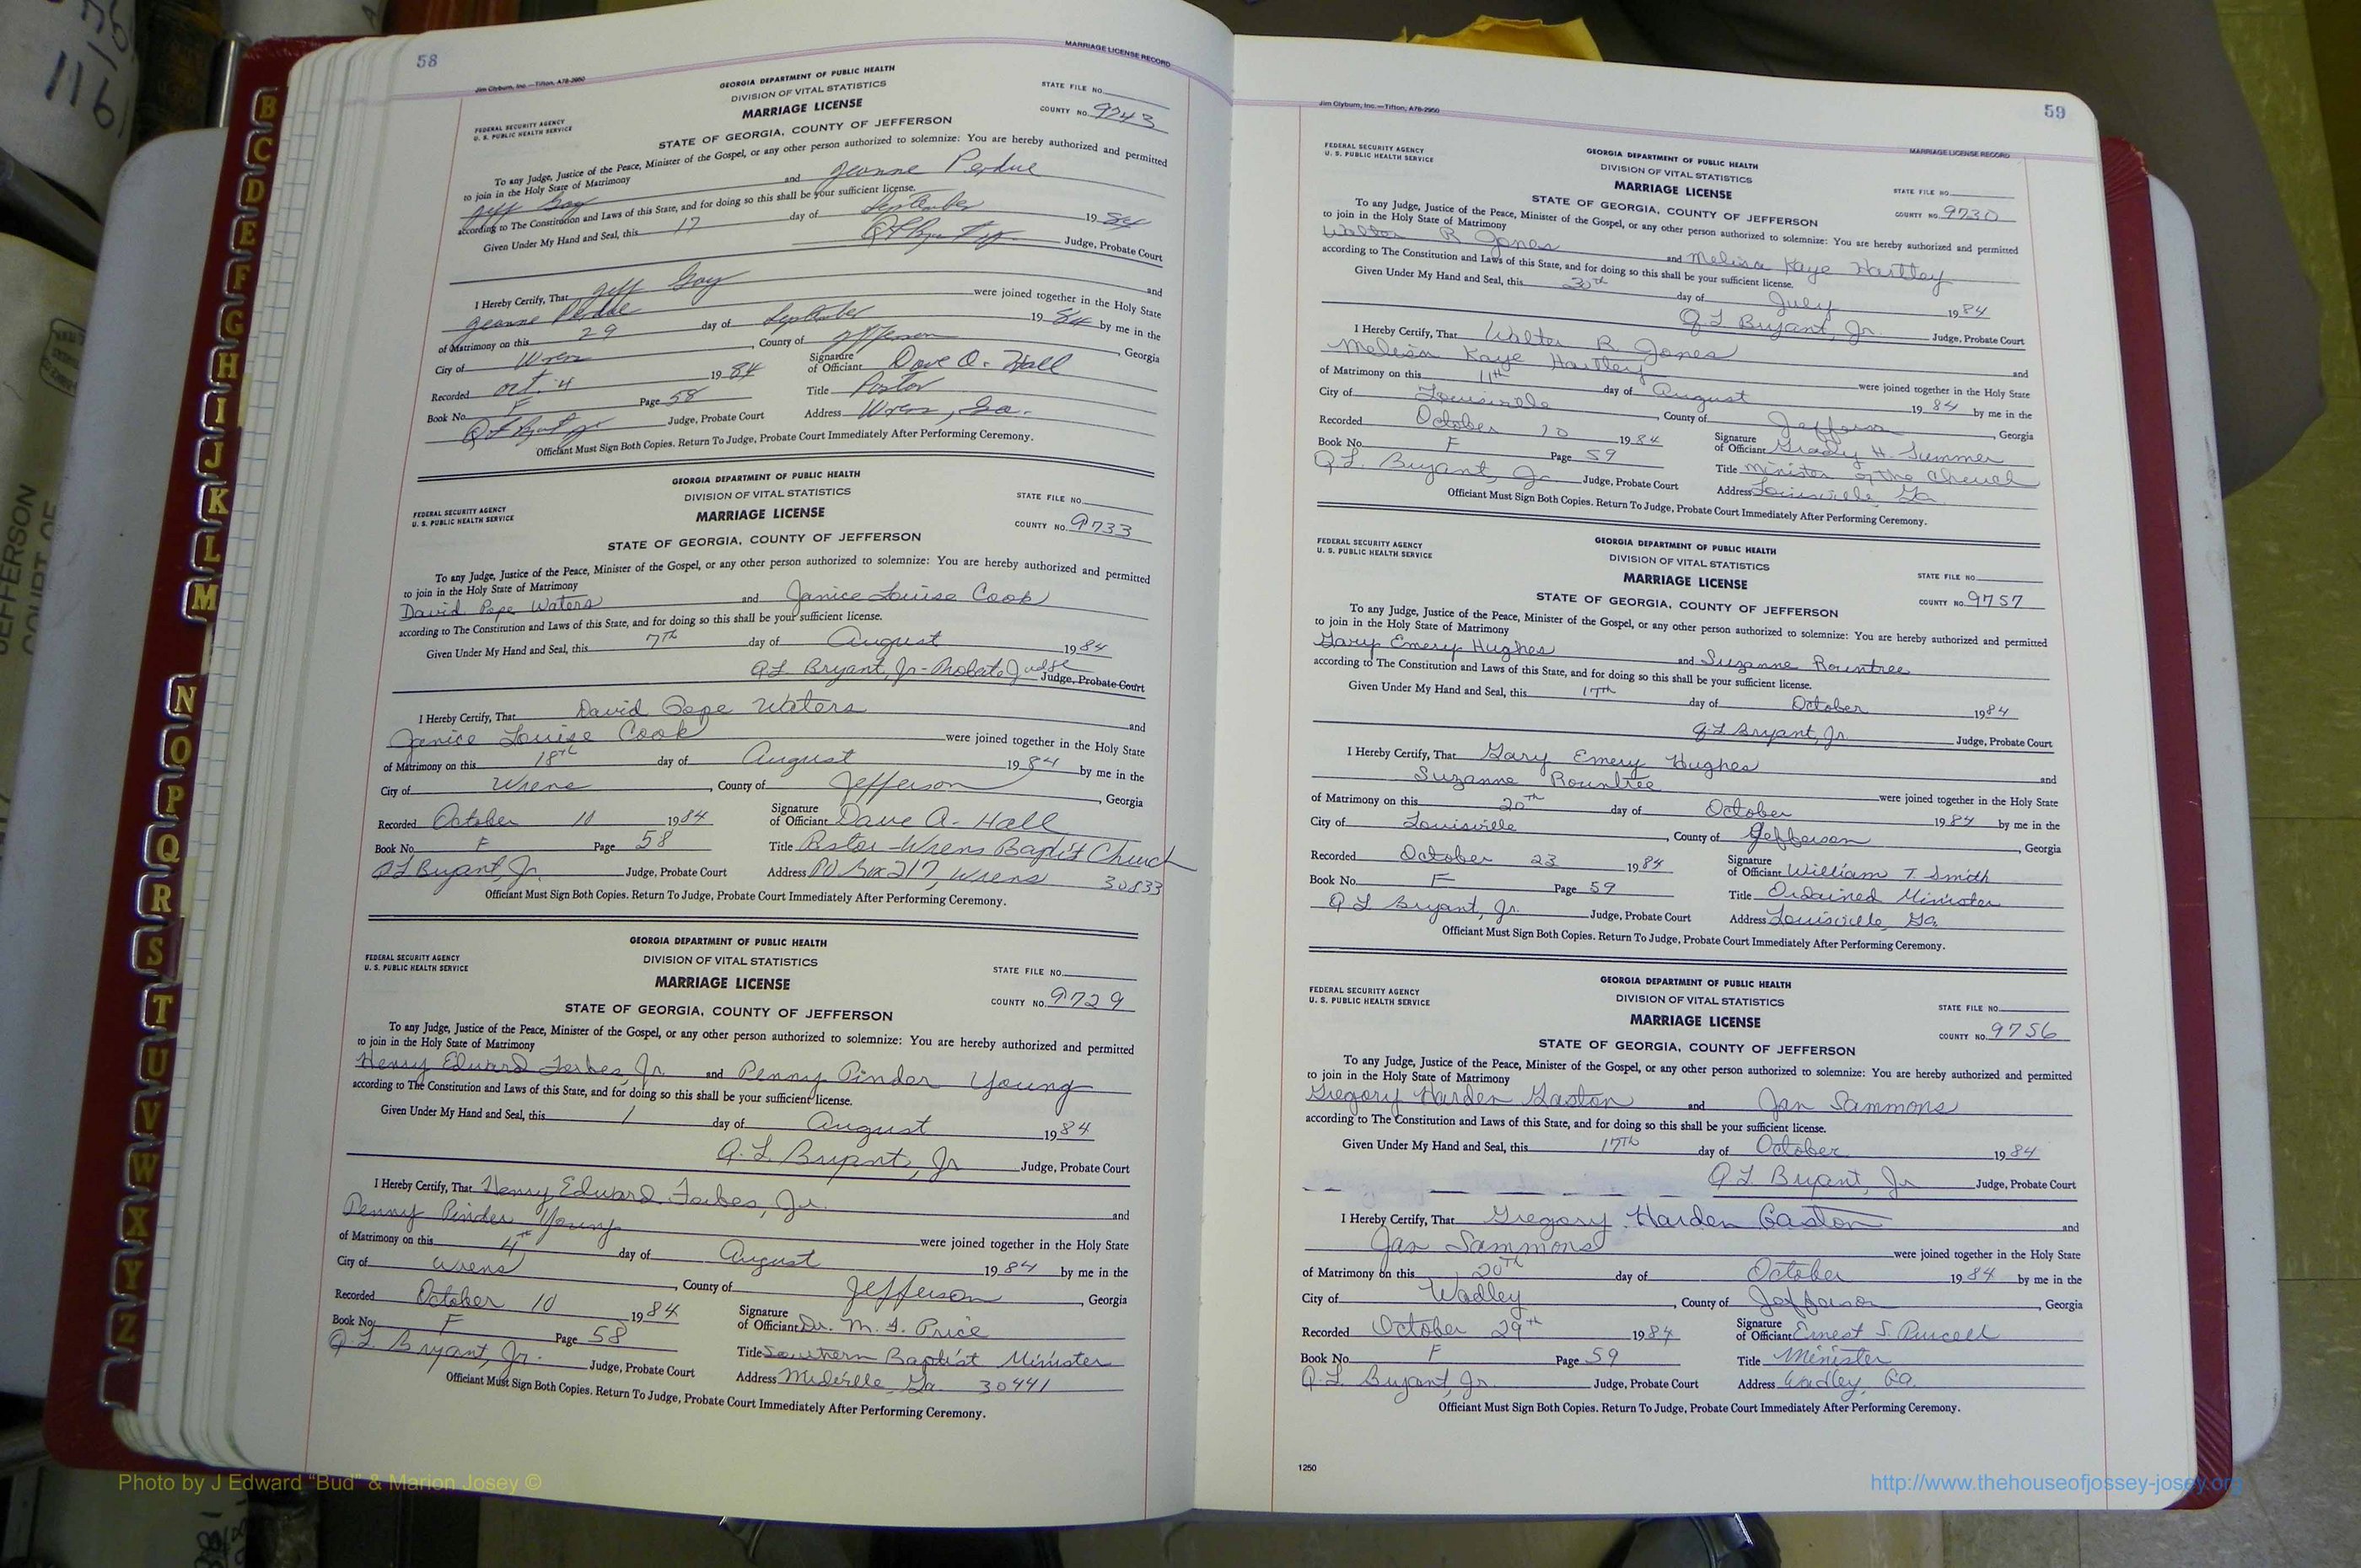 58
MARRIAGE LICENSE RECORD
Jim Clyburn, Inc.—Tifton, A78-2950
GEORGIA DEPARTMENT OF PUBLIC HEALTH
DIVISION OF VITAL STATISTICS
MARRIAGE LICENSE
FEDERAL SECURITY AGENCY
U. S. PUBLIC HEALTH SERVICE
STATE FILE NO.
COUNTY NO. 9743
STATE OF GEORGIA, COUNTY OF JEFFERSON
To any Judge, Justice of the Peace, Minister of the Gospel, or any other person authorized to solemnize: You are hereby authorized and permitted
to join in the Holy State of Matrimony
Jeff Gay and Jeanne Perdue
according to The Constitution and Laws of this State, and for doing so this shall be your sufficient license.
Given Under My Hand and Seal, this 17 day of September 1984
Q L Bryant Jr. Judge, Probate Court
I Hereby Certify, That Jeff Gay and
Jeanne Perdue were joined together in the Holy State
of Matrimony on this 29 day of September 1984 by me in the
City of Wrens, County of Jefferson, Georgia
Recorded Oct. 4 1984 Signature of Officiant Dave A. Hall
Book No. F Page 58 Title Pastor
Q L Bryant Jr Judge, Probate Court Address Wrens, Ga.
Officiant Must Sign Both Copies. Return To Judge, Probate Court Immediately After Performing Ceremony.
GEORGIA DEPARTMENT OF PUBLIC HEALTH
DIVISION OF VITAL STATISTICS
MARRIAGE LICENSE
FEDERAL SECURITY AGENCY
U. S. PUBLIC HEALTH SERVICE
STATE FILE NO.
COUNTY NO. 9733
STATE OF GEORGIA, COUNTY OF JEFFERSON
To any Judge, Justice of the Peace, Minister of the Gospel, or any other person authorized to solemnize: You are hereby authorized and permitted
to join in the Holy State of Matrimony
David Pope Waters and Janice Louise Cook
according to The Constitution and Laws of this State, and for doing so this shall be your sufficient license.
Given Under My Hand and Seal, this 7th day of August 1984
Q.L. Bryant, Jr-Probate Judge Judge, Probate Court
I Hereby Certify, That David Pope Waters and
Janice Louise Cook were joined together in the Holy State
of Matrimony on this 18th day of August 1984 by me in the
City of Wrens, County of Jefferson, Georgia
Recorded October 10 1984 Signature of Officiant Dave A. Hall
Book No. F Page 58 Title Pastor-Wrens Baptist Church
Q L Bryant, Jr. Judge, Probate Court Address PO Box 217, Wrens 30833
Officiant Must Sign Both Copies. Return To Judge, Probate Court Immediately After Performing Ceremony.
GEORGIA DEPARTMENT OF PUBLIC HEALTH
DIVISION OF VITAL STATISTICS
MARRIAGE LICENSE
FEDERAL SECURITY AGENCY
U. S. PUBLIC HEALTH SERVICE
STATE FILE NO.
COUNTY NO. 9729
STATE OF GEORGIA, COUNTY OF JEFFERSON
To any Judge, Justice of the Peace, Minister of the Gospel, or any other person authorized to solemnize: You are hereby authorized and permitted
to join in the Holy State of Matrimony
Henry Edward Forbes, Jr. and Penny Pinder Young
according to The Constitution and Laws of this State, and for doing so this shall be your sufficient license.
Given Under My Hand and Seal, this 1 day of August 1984
Q. L. Bryant, Jr Judge, Probate Court
I Hereby Certify, That Henry Edward Forbes, Jr. and
Penny Pinder Young were joined together in the Holy State
of Matrimony on this 4th day of August 1984 by me in the
City of Wrens, County of Jefferson, Georgia
Recorded October 10 1984 Signature of Officiant Dr. M. F. Price
Book No. F Page 58 Title Southern Baptist Minister
Q L Bryant, Jr. Judge, Probate Court Address Midville, Ga. 30441
Officiant Must Sign Both Copies. Return To Judge, Probate Court Immediately After Performing Ceremony.
59
Jim Clyburn, Inc.—Tifton, A78-2950
MARRIAGE LICENSE RECORD
GEORGIA DEPARTMENT OF PUBLIC HEALTH
DIVISION OF VITAL STATISTICS
MARRIAGE LICENSE
FEDERAL SECURITY AGENCY
U. S. PUBLIC HEALTH SERVICE
STATE FILE NO.
COUNTY NO. 9730
STATE OF GEORGIA, COUNTY OF JEFFERSON
To any Judge, Justice of the Peace, Minister of the Gospel, or any other person authorized to solemnize: You are hereby authorized and permitted
to join in the Holy State of Matrimony
Walter R Jones and Melisa Kaye Hartley
according to The Constitution and Laws of this State, and for doing so this shall be your sufficient license.
Given Under My Hand and Seal, this 30th day of July 1984
Q L Bryant, Jr. Judge, Probate Court
I Hereby Certify, That Walter R Jones and
Melisa Kaye Hartley were joined together in the Holy State
of Matrimony on this 11th day of August 1984 by me in the
City of Louisville, County of Jefferson, Georgia
Recorded October 10 1984 Signature of Officiant Grady H. Summer
Book No. F Page 59 Title Minister of the Church
Q L. Bryant, Jr Judge, Probate Court Address Louisville, Ga
Officiant Must Sign Both Copies. Return To Judge, Probate Court Immediately After Performing Ceremony.
GEORGIA DEPARTMENT OF PUBLIC HEALTH
DIVISION OF VITAL STATISTICS
MARRIAGE LICENSE
FEDERAL SECURITY AGENCY
U. S. PUBLIC HEALTH SERVICE
STATE FILE NO.
COUNTY NO. 9757
STATE OF GEORGIA, COUNTY OF JEFFERSON
To any Judge, Justice of the Peace, Minister of the Gospel, or any other person authorized to solemnize: You are hereby authorized and permitted
to join in the Holy State of Matrimony
Gary Emery Hughes and Suzanne Rountree
according to The Constitution and Laws of this State, and for doing so this shall be your sufficient license.
Given Under My Hand and Seal, this 17th day of October 1984
Q L Bryant, Jr. Judge, Probate Court
I Hereby Certify, That Gary Emery Hughes and
Suzanne Rountree were joined together in the Holy State
of Matrimony on this 20th day of October 1984 by me in the
City of Louisville, County of Jefferson, Georgia
Recorded October 23 1984 Signature of Officiant William T. Smith
Book No. F Page 59 Title Ordained Minister
Q L Bryant, Jr. Judge, Probate Court Address Louisville, Ga.
Officiant Must Sign Both Copies. Return To Judge, Probate Court Immediately After Performing Ceremony.
GEORGIA DEPARTMENT OF PUBLIC HEALTH
DIVISION OF VITAL STATISTICS
MARRIAGE LICENSE
FEDERAL SECURITY AGENCY
U. S. PUBLIC HEALTH SERVICE
STATE FILE NO.
COUNTY NO. 9756
STATE OF GEORGIA, COUNTY OF JEFFERSON
To any Judge, Justice of the Peace, Minister of the Gospel, or any other person authorized to solemnize: You are hereby authorized and permitted
to join in the Holy State of Matrimony
Gregory Harden Gaston and Jan Sammons
according to The Constitution and Laws of this State, and for doing so this shall be your sufficient license.
Given Under My Hand and Seal, this 17th day of October 1984
Q L Bryant, Jr Judge, Probate Court
I Hereby Certify, That Gregory Harden Gaston and
Jan Sammons were joined together in the Holy State
of Matrimony on this 20th day of October 1984 by me in the
City of Wadley, County of Jefferson, Georgia
Recorded October 29th 1984 Signature of Officiant Ernest S. Purcell
Book No. F Page 59 Title Minister
Q. L. Bryant, Jr. Judge, Probate Court Address Wadley, Ga.
Officiant Must Sign Both Copies. Return To Judge, Probate Court Immediately After Performing Ceremony.
1250
B
C
D
E
F
G
H
I
J
K
L
M
N
O
P
Q
R
S
T
U
V
W
X
Y
Z
JEFFERSON
COURT OF
Photo by J Edward “Bud” & Marion Josey ©
http://www.thehouseofjossey-josey.org